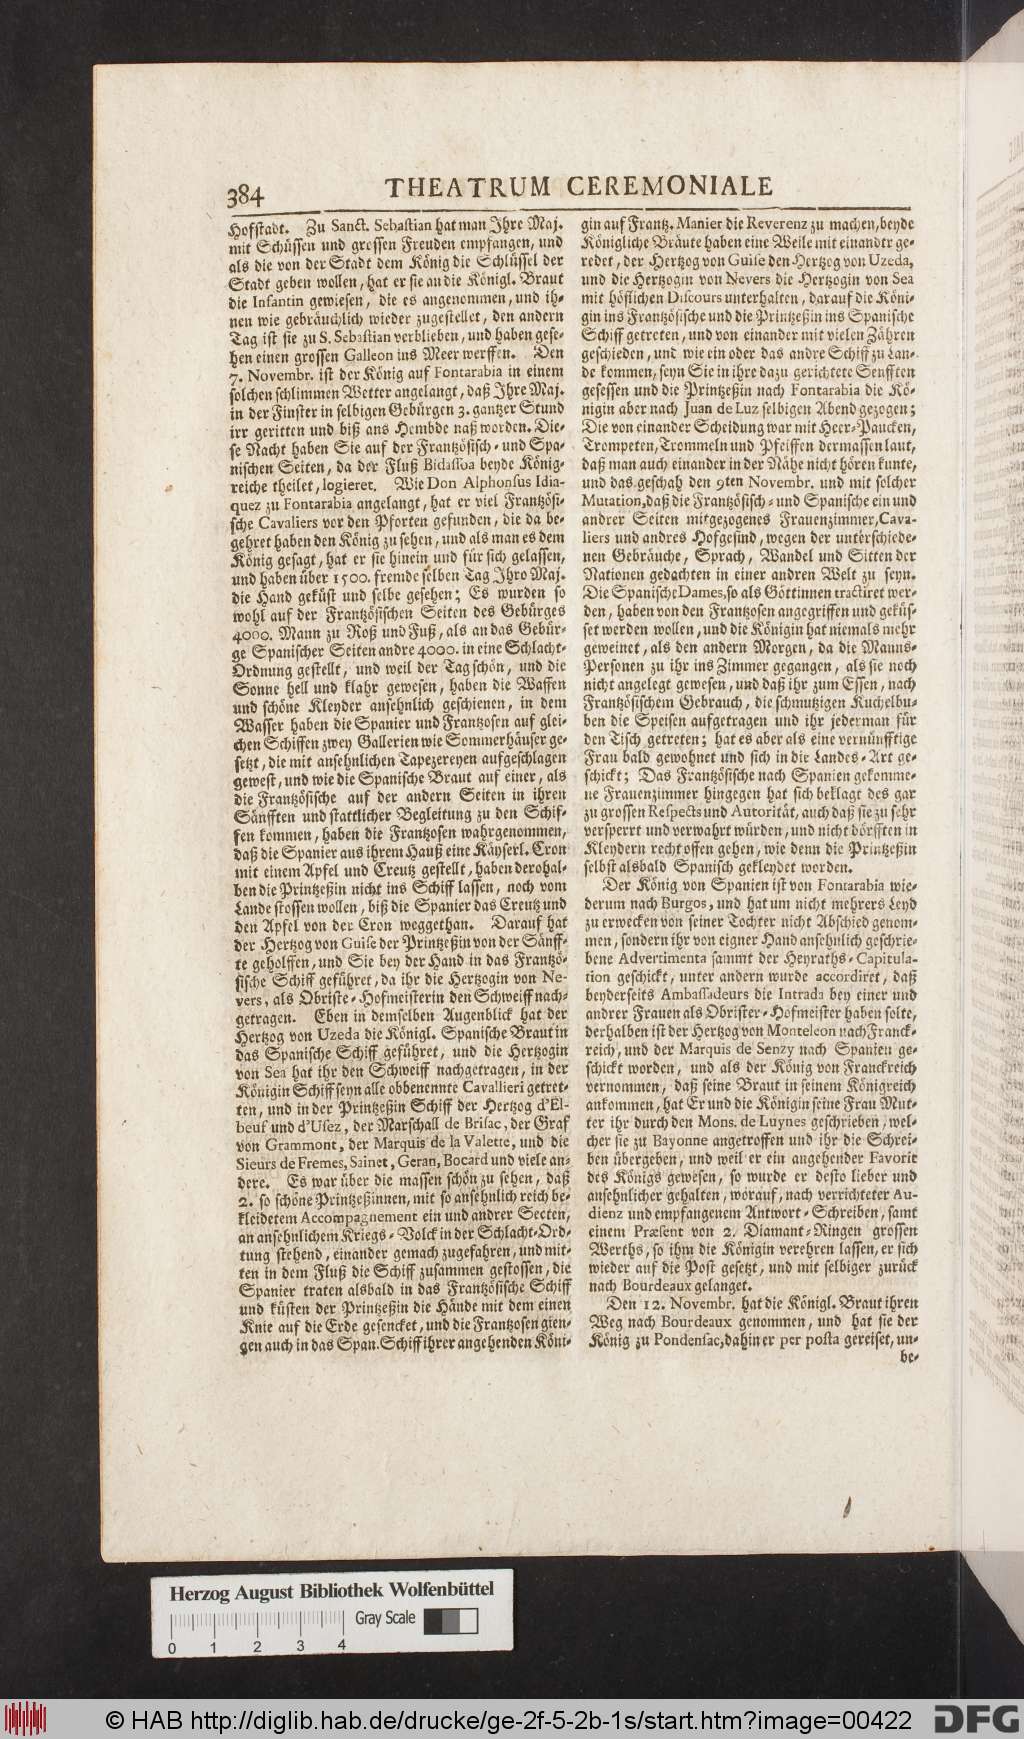 384
THEATRUM CEREMONIALE
Hofstadt. Zu Sanct. Sebastian hat man Ihre Maj.
mit Schüssen und grossen Freuden empfangen, und
als die von der Stadt dem König die Schlüssel der
Stadt geben wollen, hat er sie an die Königl. Braut
die Infantin gewiesen, die es angenommen, und ih-
nen wie gebräuchlich wieder zugestellet, den andern
Tag ist sie zu S. Sebastian verblieben, und haben gese-
hen einen grossen Galleon ins Meer werffen. Den
7. Novembr. ist der König auf Fontarabia in einem
solchen schlimmen Wetter angelangt, daß Ihre Maj.
in der Finster in selbigen Gebürgen 3. gantzer Stund
irr geritten und biß ans Hembde naß worden. Die-
se Nacht haben Sie auf der Frantzösisch- und Spa-
nischen Seiten, da der Fluß Bidassoa beyde König-
reiche theilet, logieret. Wie Don Alphonsus Idia-
quez zu Fontarabia angelangt, hat er viel Frantzösi-
sche Cavaliers vor den Pforten gefunden, die da be-
gehret haben den König zu sehen, und als man es dem
König gesagt, hat er sie hinein und für sich gelassen,
und haben über 1500. fremde selben Tag Ihro Maj.
die Hand geküst und selbe gesehen; Es wurden so
wohl auf der Frantzösischen Seiten des Gebürges
4000. Mann zu Roß und Fuß, als an das Gebür-
ge Spanischer Seiten andre 4000. in eine Schlacht-
Ordnung gestellt, und weil der Tag schön, und die
Sonne hell und klahr gewesen, haben die Waffen
und schöne Kleyder ansehnlich geschienen, in dem
Wasser haben die Spanier und Frantzosen auf glei-
chen Schiffen zwey Gallerien wie Sommerhäuser ge-
setzt, die mit ansehnlichen Tapezereyen aufgeschlagen
gewest, und wie die Spanische Braut auf einer, als
die Frantzösische auf der andern Seiten in ihren
Sänfften und stattlicher Begleitung zu den Schif-
fen kommen, haben die Frantzosen wahrgenommen,
daß die Spanier aus ihrem Hauß eine Käyserl. Cron
mit einem Apfel und Creutz gestellt, haben derohal-
ben die Printzeßin nicht ins Schiff lassen, noch vom
Lande stossen wollen, biß die Spanier das Creutz und
den Apfel von der Cron weggethan. Darauf hat
der Hertzog von Guise der Printzeßin von der Sänff-
te geholffen, und Sie bey der Hand in das Frantzö-
sische Schiff geführet, da ihr die Hertzogin von Ne-
vers, als Obriste-Hofmeisterin den Schweiff nach-
getragen. Eben in demselben Augenblick hat der
Hertzog von Uzeda die Königl. Spanische Braut in
das Spanische Schiff geführet, und die Hertzogin
von Sea hat ihr den Schweiff nachgetragen, in der
Königin Schiff seyn alle obbenennte Cavallieri getret-
ten, und in der Printzeßin Schiff der Hertzog d'El-
beuf und d'Usez, der Marschall de Brisac, der Graf
von Grammont, der Marquis de la Valette, und die
Sieurs de Fremes, Sainet, Geran, Bocard und viele an-
dere. Es war über die massen schön zu sehen, daß
2. so schöne Printzeßinnen, mit so ansehnlich reich be-
kleidetem Accompagnement ein und andrer Secten,
an ansehnlichem Kriegs-Volck in der Schlacht-Ord-
tung stehend, einander gemach zugefahren, und mit-
ten in dem Fluß die Schiff zusammen gestossen, die
Spanier traten alsbald in das Frantzösische Schiff
und küsten der Printzeßin die Hände mit dem einen
Knie auf die Erde gesencket, und die Frantzosen gien-
gen auch in das Span. Schiff ihrer angehenden Köni-
gin auf Frantz. Manier die Reverenz zu machen, beyde
Königliche Bräute haben eine Weile mit einander ge-
redet, der Hertzog von Guise den Hertzog von Uzeda,
und die Hertzogin von Nevers die Hertzogin von Sea
mit höflichen Discours unterhalten, darauf die Köni-
gin ins Frantzösische und die Printzeßin ins Spanische
Schiff getreten, und von einander mit vielen Zähren
geschieden, und wie ein oder das andre Schiff zu Lan-
de kommen, seyn Sie in ihre dazu gerichtete Senfften
gesessen und die Printzeßin nach Fontarabia die Kö-
nigin aber nach Juan de Luz selbigen Abend gezogen;
Die von einander Scheidung war mit Heer-Paucken,
Trompeten, Trommeln und Pfeiffen dermassen laut,
daß man auch einander in der Nähe nicht hören kunte,
und das geschah den 9ten Novembr. und mit solcher
Mutation, daß die Frantzösisch- und Spanische ein und
andrer Seiten mitgezogenes Frauenzimmer, Cava-
liers und andres Hofgesind, wegen der unterschiede-
nen Gebräuche, Sprach, Wandel und Sitten der
Nationen gedachten in einer andren Welt zu seyn.
Die Spanische Dames, so als Göttinnen tractiret wer-
den, haben von den Frantzosen angegriffen und geküs-
set werden wollen, und die Königin hat niemals mehr
geweinet, als den andern Morgen, da die Manns-
Personen zu ihr ins Zimmer gegangen, als sie noch
nicht angelegt gewesen, und daß ihr zum Essen, nach
Frantzösischem Gebrauch, die schmutzigen Kuchelbu-
ben die Speisen aufgetragen und ihr jederman für
den Tisch getreten; hat es aber als eine vernünfftige
Frau bald gewohnet und sich in die Landes-Art ge-
schickt; Das Frantzösische nach Spanien gekomme-
ne Frauenzimmer hingegen hat sich beklagt des gar
zu grossen Respects und Autorität, auch daß sie zu sehr
versperrt und verwahrt würden, und nicht dörfften in
Kleydern recht offen gehen, wie denn die Printzeßin
selbst alsbald Spanisch gekleydet worden.
Der König von Spanien ist von Fontarabia wie-
derum nach Burgos, und hat um nicht mehrers Leyd
zu erwecken von seiner Tochter nicht Abschied genom-
men, sondern ihr von eigner Hand ansehnlich geschrie-
bene Advertimenta sammt der Heyraths-Capitula-
tion geschickt, unter andern wurde accordiret, daß
beyderseits Ambassadeurs die Intrada bey einer und
andrer Frauen als Obrister-Hofmeister haben solte,
derhalben ist der Hertzog von Monteleon nach Franck-
reich, und der Marquis de Senzy nach Spanien ge-
schickt worden, und als der König von Franckreich
vernommen, daß seine Braut in seinem Königreich
ankommen, hat Er und die Königin seine Frau Mut-
ter ihr durch den Mons. de Luynes geschrieben, wel-
cher sie zu Bayonne angetroffen und ihr die Schrei-
ben übergeben, und weil er ein angehender Favorit
des Königs gewesen, so wurde er desto lieber und
ansehnlicher gehalten, worauf, nach verrichteter Au-
dienz und empfangenem Antwort-Schreiben, samt
einem Præsent von 2. Diamant-Ringen grossen
Werths, so ihm die Königin verehren lassen, er sich
wieder auf die Post gesetzt, und mit selbiger zurück
nach Bourdeaux gelanget.
Den 12. Novembr. hat die Königl. Braut ihren
Weg nach Bourdeaux genommen, und hat sie der
König zu Pondensac, dahin er per posta gereiset, un-
be-
Herzog August Bibliothek Wolfenbüttel
Gray Scale
0 1 2 3 4
© HAB http://diglib.hab.de/drucke/ge-2f-5-2b-1s/start.htm?image=00422
DFG